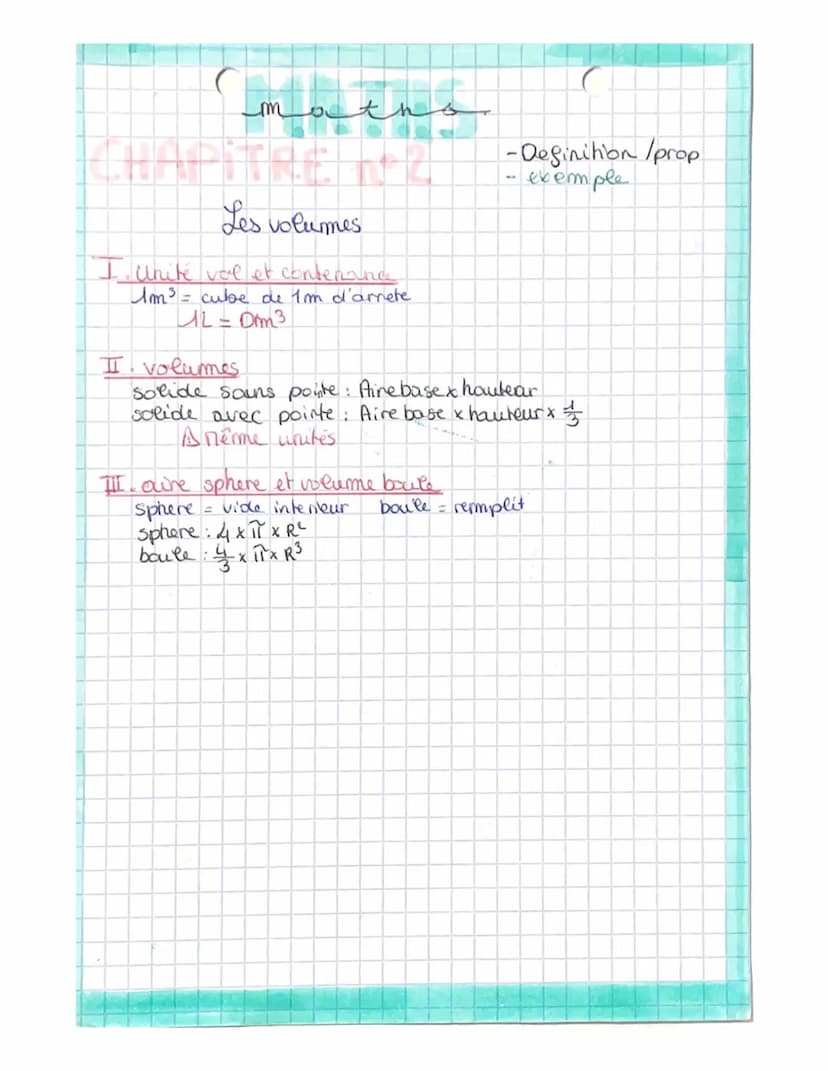 MATHS
maths
CHAPITRE n°2
- Definition / prop
- exemple
Les volumes
I. Unité vol et contenance
1m³ = cube de 1m d'arrete
1L = Dm³
II. volumes
solide sans pointe : Aire base x hauteur
solide avec pointe : Aire base x hauteur x 1/3
⚠ même unités
III. aire sphere et volume boule
sphere = vide interieur boule = remplit
sphere : 4 x π x R²
boule : 4/3 x π x R³